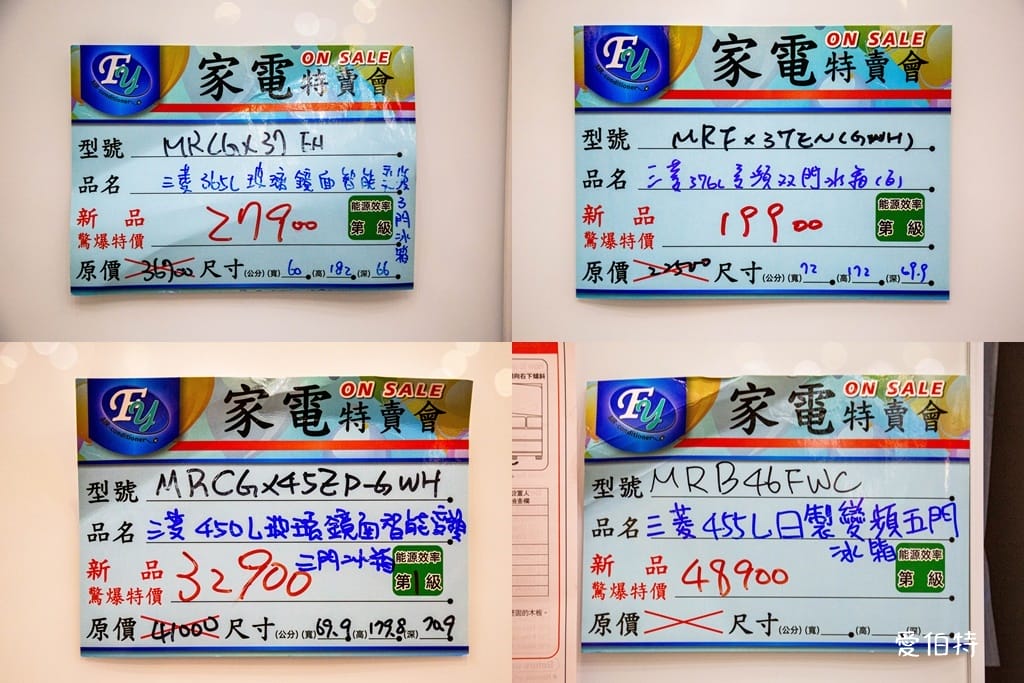 FY
ON SALE
家電特賣會
型號 MRCGX37EH
品名 三菱365L玻璃鏡面智能變頻
3門冰箱
新品
驚爆特價 27900
能源效率
第 級
原價 36900 尺寸(公分)(寬)60(高)182(深)66
FY
ON SALE
家電特賣會
型號 MRFX37EN(GWH)
品名 三菱376L變頻双門冰箱(白)
新品
驚爆特價 19900
能源效率
第 級
原價 22500 尺寸(公分)(寬)72(高)172(深)69.9
FY
conditioner
ON SALE
家電特賣會
型號 MRCGX45EP-GWH
品名 三菱450L玻璃鏡面智能變頻
三門冰箱
新品
驚爆特價 32900
能源效率
第1級
原價 41000 尺寸(公分)(寬)69.9(高)179.8(深)70.9
FY
conditioner
ON SALE
家電特賣會
型號 MRB46FWC
品名 三菱455L日製變頻五門
冰箱
新品
驚爆特價 48900
能源效率
第1級
原價 尺寸(公分)(寬)(高)(深)
愛伯特